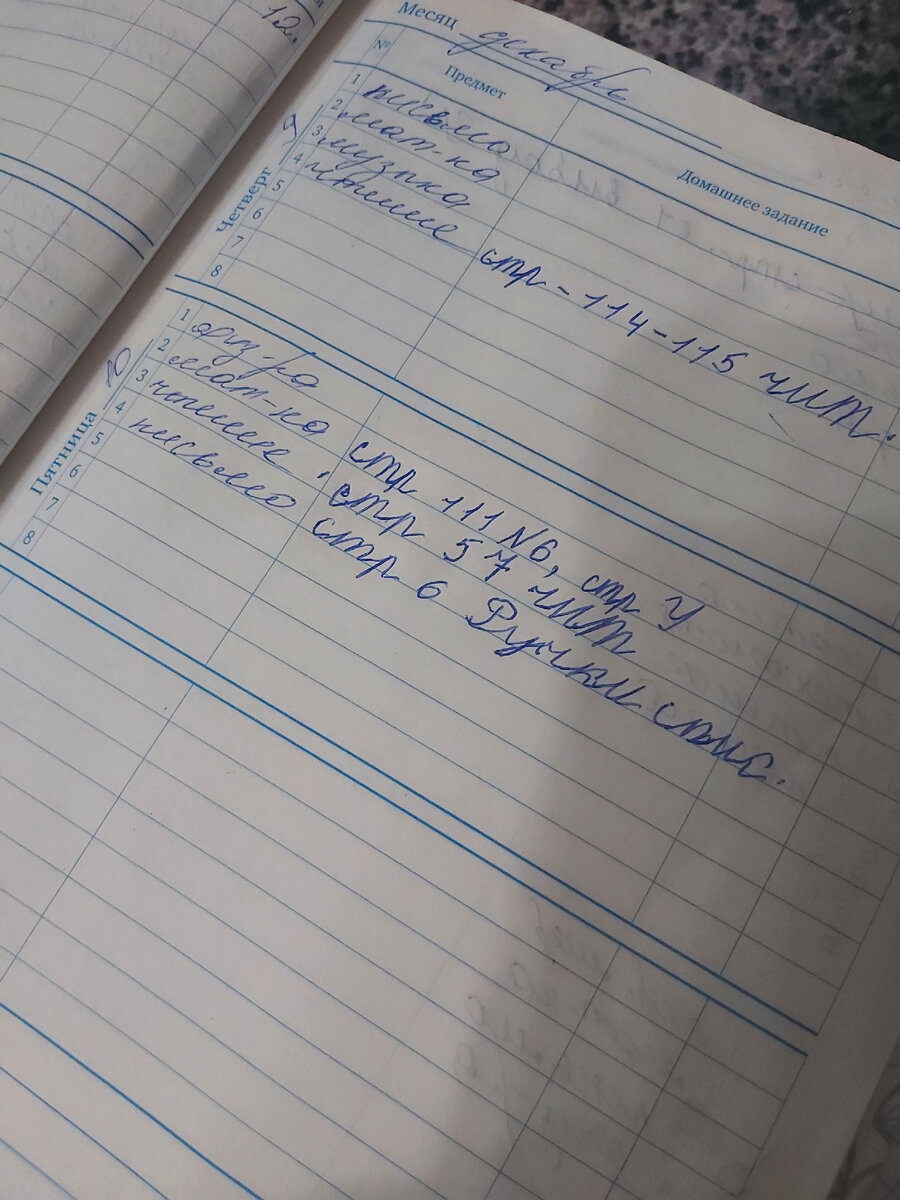 12.
Месяц декабрь
№ Предмет Домашнее задание
Четверг 9
1 письмо
2 мат-ка
3 музыка
4 чтение стр-114-115 чит.
5
6
7
8
Пятница 10
1 физ-ра
2 мат-ка стр 111 №6, стр У
3 чтение, стр 57 чит
4 письмо стр 6 Ручки спис.
5
6
7
8